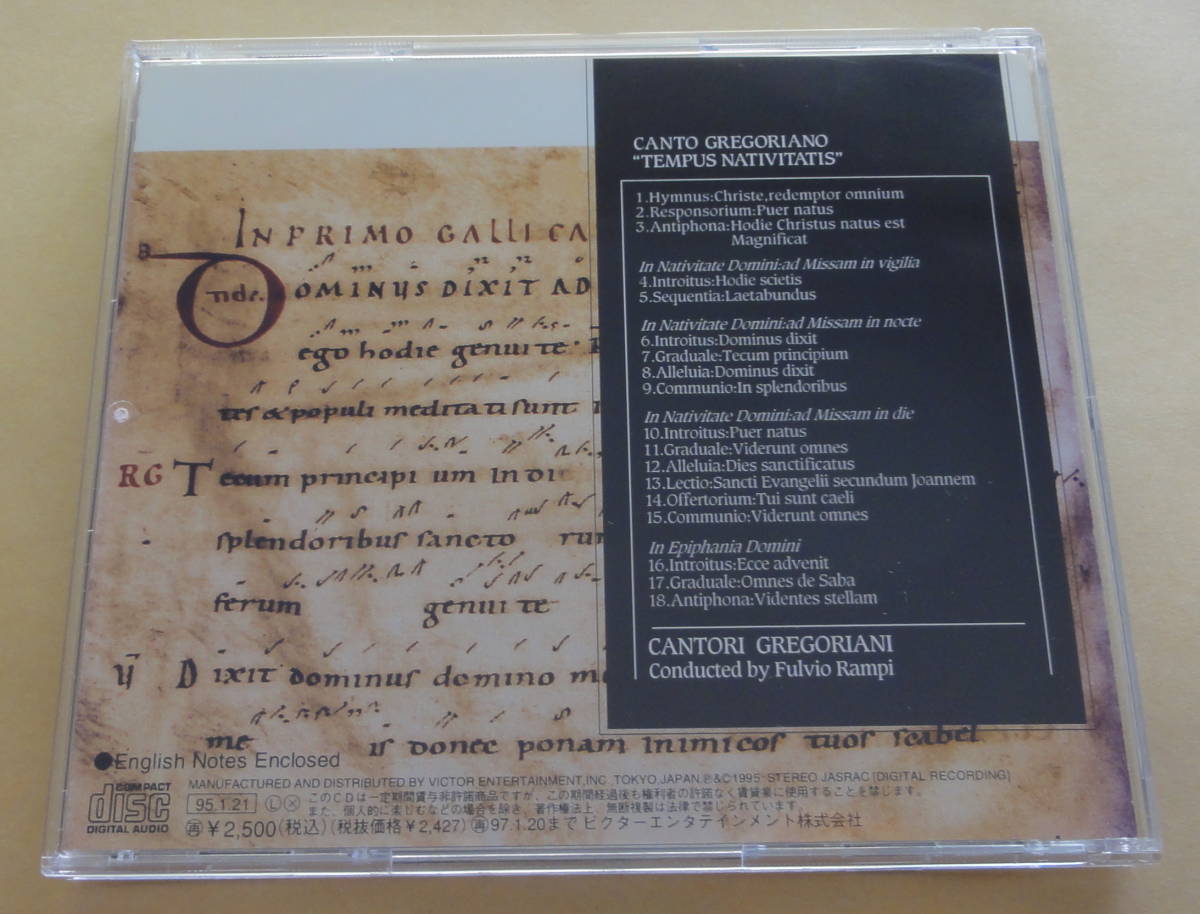 CANTO GREGORIANO
“TEMPUS NATIVITATIS”
1.Hymnus:Christe,redemptor omnium
2.Responsorium:Puer natus
3.Antiphona:Hodie Christus natus est
Magnificat
In Nativitate Domini:ad Missam in vigilia
4.Introitus:Hodie scietis
5.Sequentia:Laetabundus
In Nativitate Domini:ad Missam in nocte
6.Introitus:Dominus dixit
7.Graduale:Tecum principium
8.Alleluia:Dominus dixit
9.Communio:In splendoribus
In Nativitate Domini:ad Missam in die
10.Introitus:Puer natus
11.Graduale:Viderunt omnes
12.Alleluia:Dies sanctificatus
13.Lectio:Sancti Evangelii secundum Joannem
14.Offertorium:Tui sunt caeli
15.Communio:Viderunt omnes
In Epiphania Domini
16.Introitus:Ecce advenit
17.Graduale:Omnes de Saba
18.Antiphona:Videntes stellam
CANTORI GREGORIANI
Conducted by Fulvio Rampi
IN PRIMO GALLI CA
DOMINUS DIXIT AD
ego hodie genui te
tes & populi meditati sunt
RG Tecum principi um In di
splendoribus sancto rum
ferum genui te
Dixit dominus domino
me is donec ponam inimicos tuos scabel
●English Notes Enclosed
COMPACT disc DIGITAL AUDIO
MANUFACTURED AND DISTRIBUTED BY VICTOR ENTERTAINMENT,INC.,TOKYO,JAPAN.℗&©1995 STEREO JASRAC [DIGITAL RECORDING]
95.1.21 Ⓛ Ⓧ このCDは一定期間貸与非許諾商品ですが、この期間経過後も権利者の許諾なく賃貸業に使用することを禁じます。
また、個人的に楽しむなどの場合を除き、著作権法上、無断複製は法律で禁じられています。
再¥2,500(税込)(税抜価格¥2,427)再97.1.20まで ビクターエンタテインメント株式会社